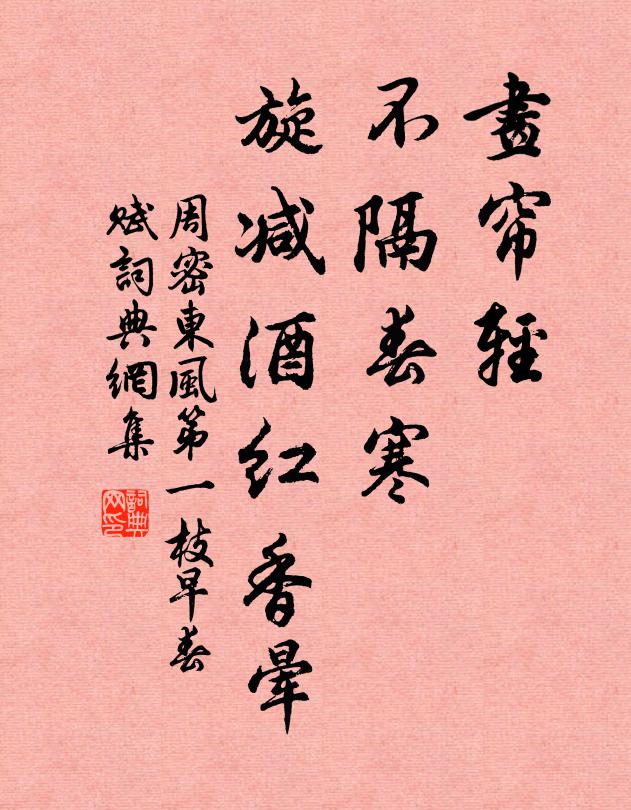 畫帘輕
不隔春寒
旋减酒红香暈
周密東風第一枝早春
赋詞典網集
詞典
网印